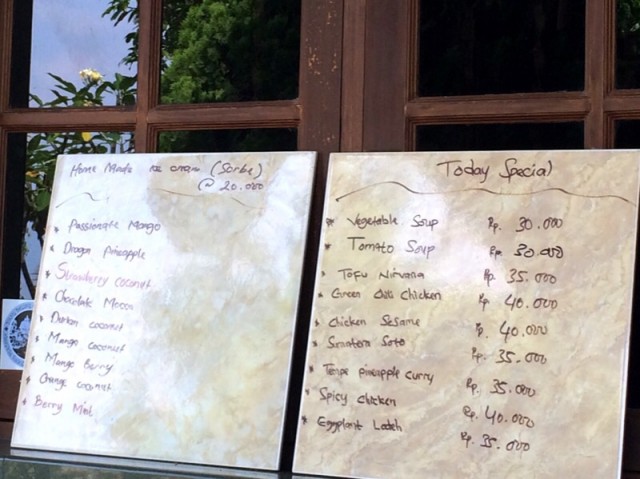 Home Made ice cream (Sorbe)
@ 20.000
* Passionate Mango
* Dragon Pineapple
* Strawberry coconut
* Chocolate
* coconut
* Mango coconut
* Mango Berry
* Orange coconut
* Berry Mint
Today Special
* Vegetable Soup Rp. 30.000
* Tomato Soup Rp. 30.000
* Tofu Nirvana Rp. 35.000
* Green Chili Chicken Rp 40.000
* Chicken Sesame Rp. 40.000
* Sumatera Soto Rp. 35.000
* Tempe pineapple curry Rp. 35.000
* Spicy chicken Rp. 40.000
* Eggplant Lodeh Rp. 35.000